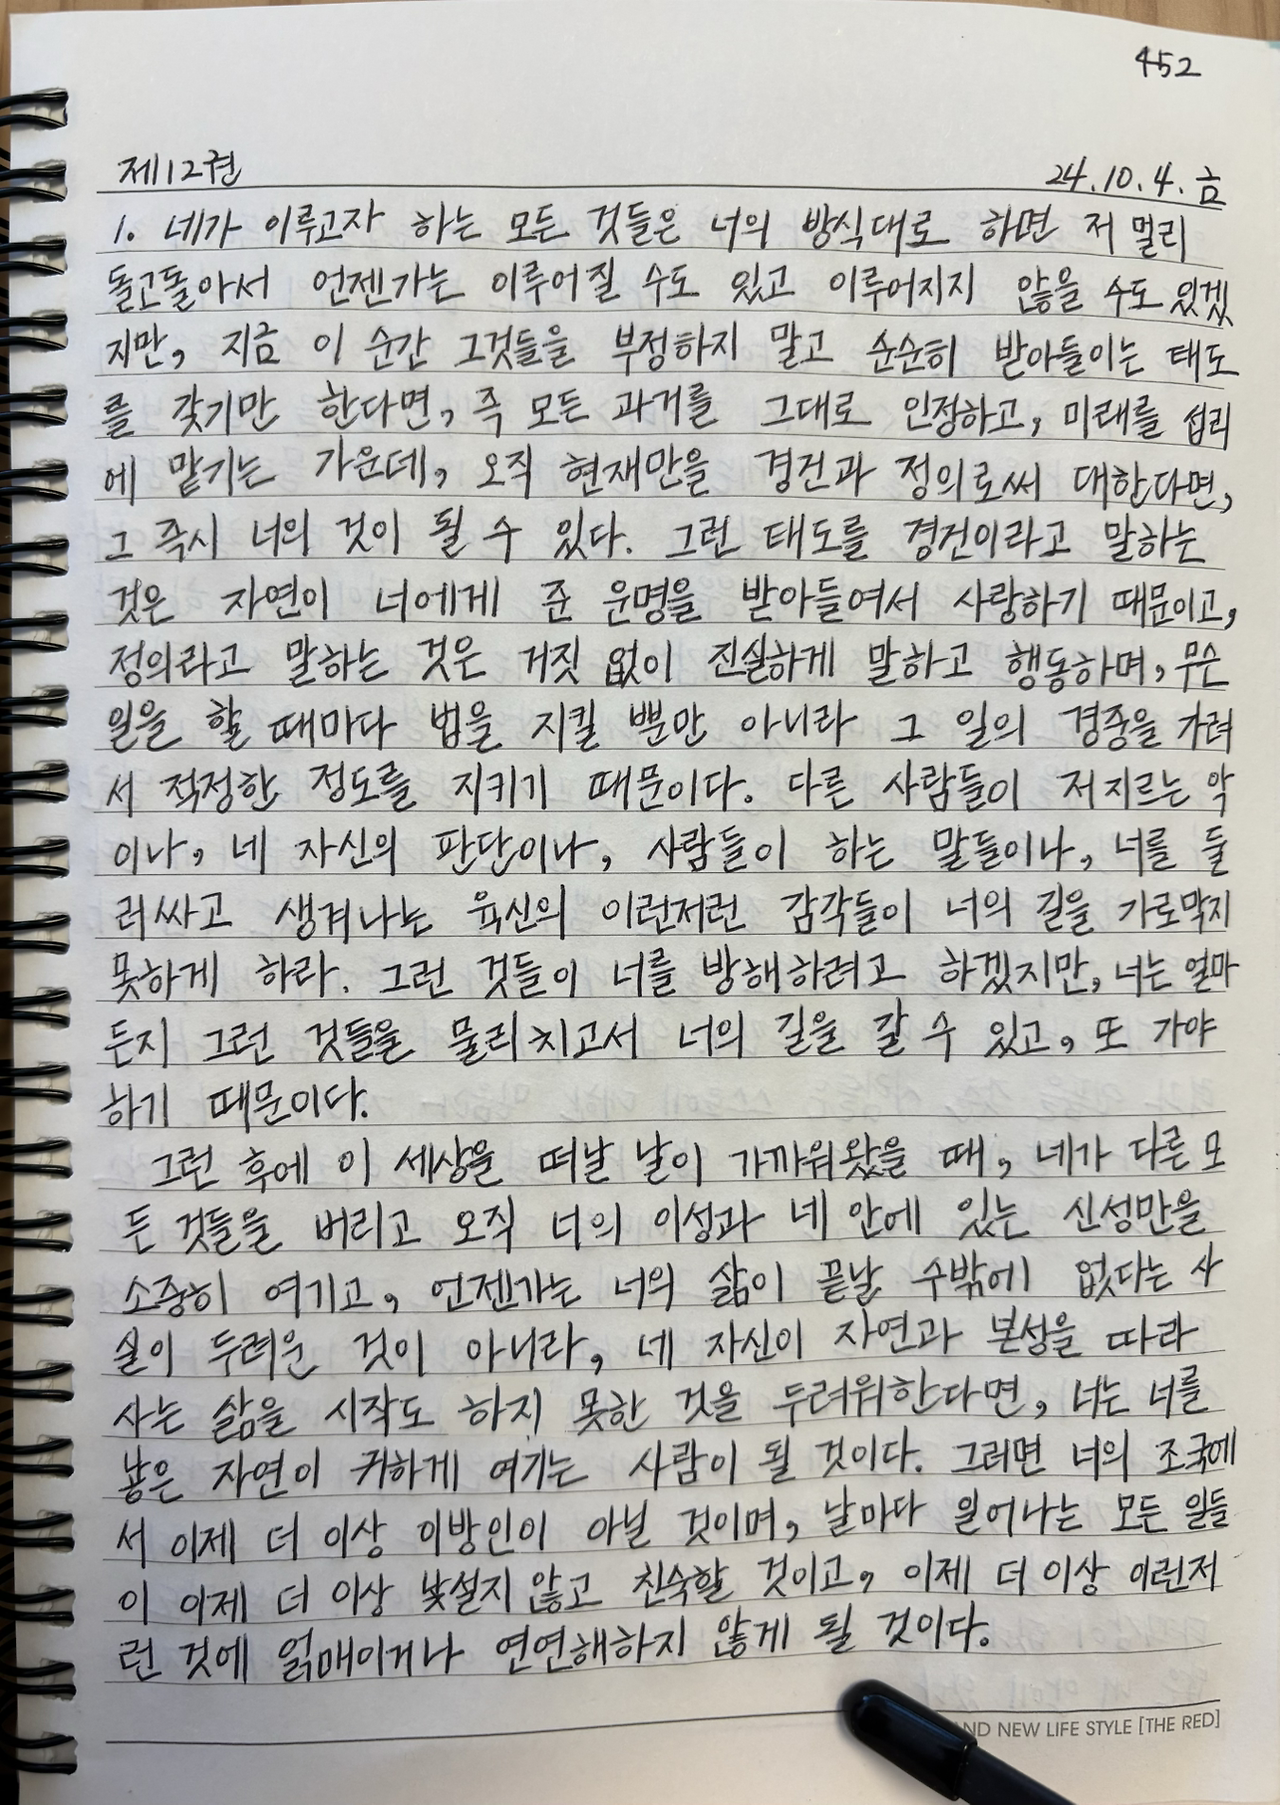 452
제12권 24.10.4.금
1. 네가 이루고자 하는 모든 것들은 너의 방식대로 하면 저 멀리
돌고돌아서 언젠가는 이루어질 수도 있고 이루어지지 않을 수도 있겠
지만, 지금 이 순간 그것들을 부정하지 말고 순순히 받아들이는 태도
를 갖기만 한다면, 즉 모든 과거를 그대로 인정하고, 미래를 섭리
에 맡기는 가운데, 오직 현재만을 경건과 정의로써 대한다면,
그 즉시 너의 것이 될 수 있다. 그런 태도를 경건이라고 말하는
것은 자연이 너에게 준 운명을 받아들여서 사랑하기 때문이고,
정의라고 말하는 것은 거짓 없이 진실하게 말하고 행동하며, 무슨
일을 할 때마다 법을 지킬 뿐만 아니라 그 일의 경중을 가려
서 적정한 정도를 지키기 때문이다. 다른 사람들이 저지르는 악
이나, 네 자신의 판단이나, 사람들이 하는 말들이나, 너를 둘
러싸고 생겨나는 육신의 이런저런 감각들이 너의 길을 가로막지
못하게 하라. 그런 것들이 너를 방해하려고 하겠지만, 너는 얼마
든지 그런 것들을 물리치고서 너의 길을 갈 수 있고, 또 가야
하기 때문이다.
그런 후에 이 세상을 떠날 날이 가까워왔을 때, 네가 다른 모
든 것들을 버리고 오직 너의 이성과 네 안에 있는 신성만을
소중히 여기고, 언젠가는 너의 삶이 끝날 수밖에 없다는 사
실이 두려운 것이 아니라, 네 자신이 자연과 본성을 따라
사는 삶을 시작도 하지 못한 것을 두려워한다면, 너는 너를
낳은 자연이 귀하게 여기는 사람이 될 것이다. 그러면 너의 조국에
서 이제 더 이상 이방인이 아닐 것이며, 날마다 일어나는 모든 일들
이 이제 더 이상 낯설지 않고 친숙할 것이고, 이제 더 이상 이런저
런 것에 얽매이거나 연연해하지 않게 될 것이다.
AND NEW LIFE STYLE [THE RED]